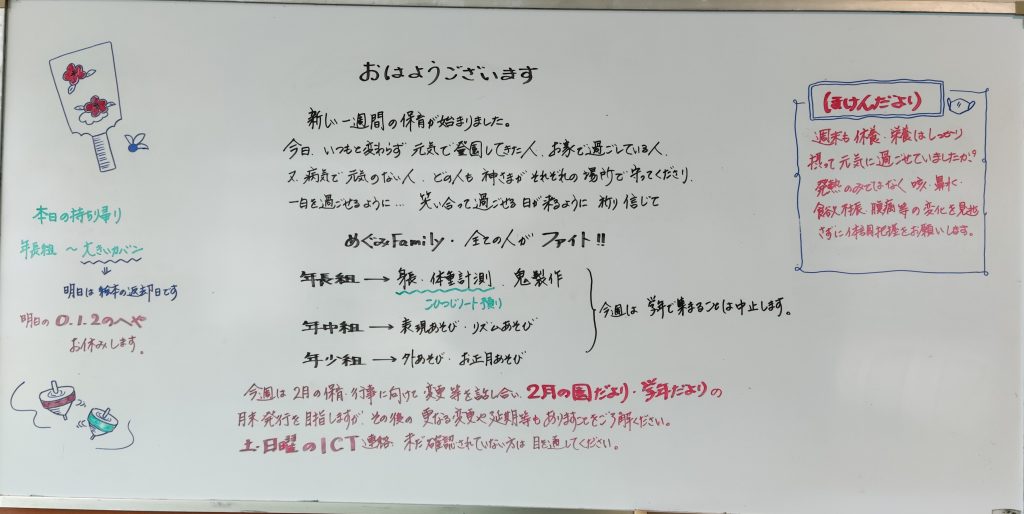 おはようございます
新しい一週間の保育が始まりました。
今日、いつもと変わらず 元気で登園してきた人、お家で過ごしている人、
又、病気で元気のない人、どの人も 神さまが それぞれの 場所で 守ってくださり、
一日を過ごせるように… 笑い合って過ごせる日が来るように 祈り 信じて
めぐみFamily・全ての人が ファイト!!
年長組 → 身長・体重計測 鬼製作
こひつじノート預り
年中組 → 表現あそび・リズムあそび
年少組 → 外あそび・お正月あそび
今週は 学年で集まることは中止します。
今週は 2月の保育・行事に向けて 変更等を話し合い、2月の園だより・学年だよりの
月末発行を目指しますが、その後の 更なる変更や延期等もありますことをご了解ください。
土・日曜のICT連絡 未だ確認されていない方は 目を通してください。
本日の持ち帰り
年長組 〜 大きいカバン
明日は 絵本の返却日です
明日の 0.1.2のへや
お休みします。
ほけんだより
週末も 休養・栄養はしっかり
摂って 元気に過ごせていましたか?
発熱のみではなく 咳・鼻水・
食欲不振・腹痛等の変化を見逃
さずに体調把握をお願いします。